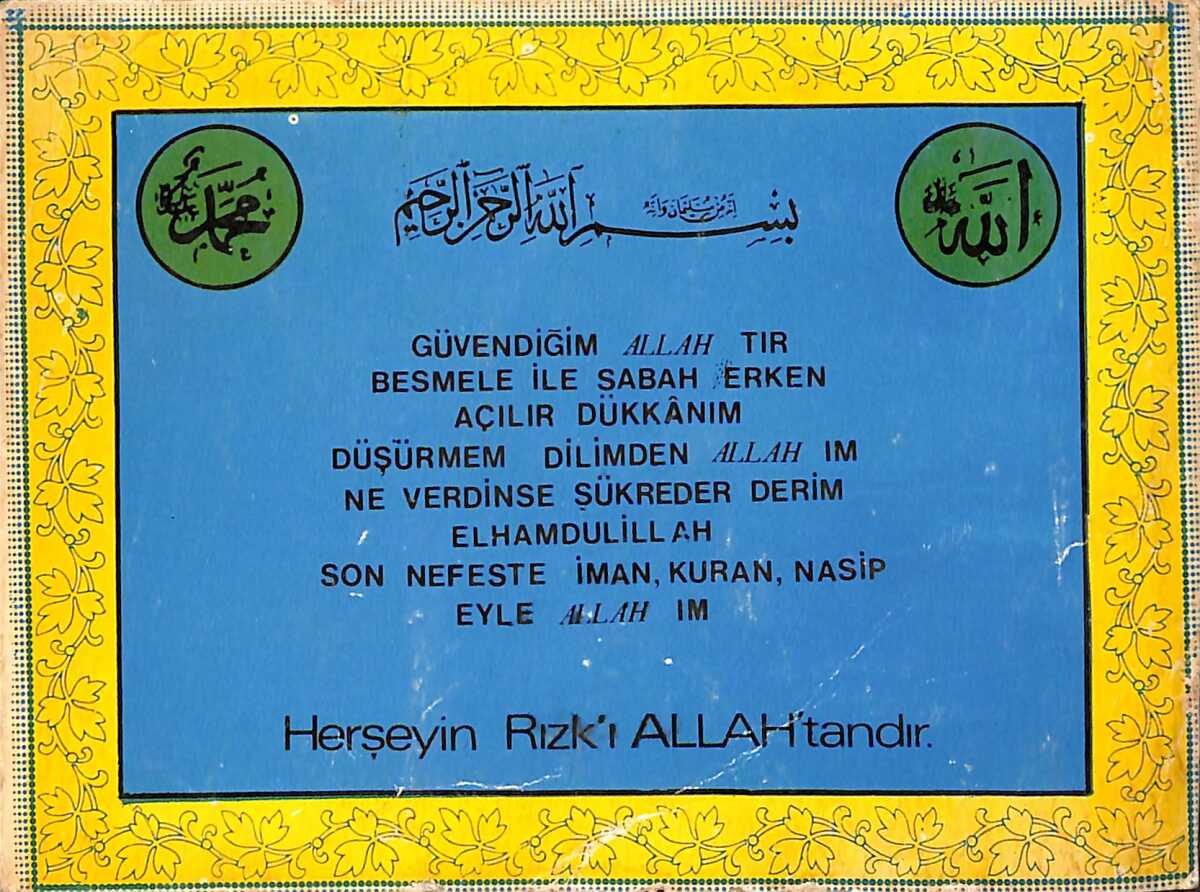 محمد
بسم الله الرحمن الرحيم
إنه من سليمان وإنه
الله
GÜVENDİĞİM ALLAH TIR
BESMELE İLE SABAH ERKEN
AÇILIR DÜKKÂNIM
DÜŞÜRMEM DİLİMDEN ALLAH IM
NE VERDİNSE ŞÜKREDER DERİM
ELHAMDULİLLAH
SON NEFESTE İMAN, KURAN, NASİP
EYLE ALLAH IM
Herşeyin Rızk'ı ALLAH'tandır.